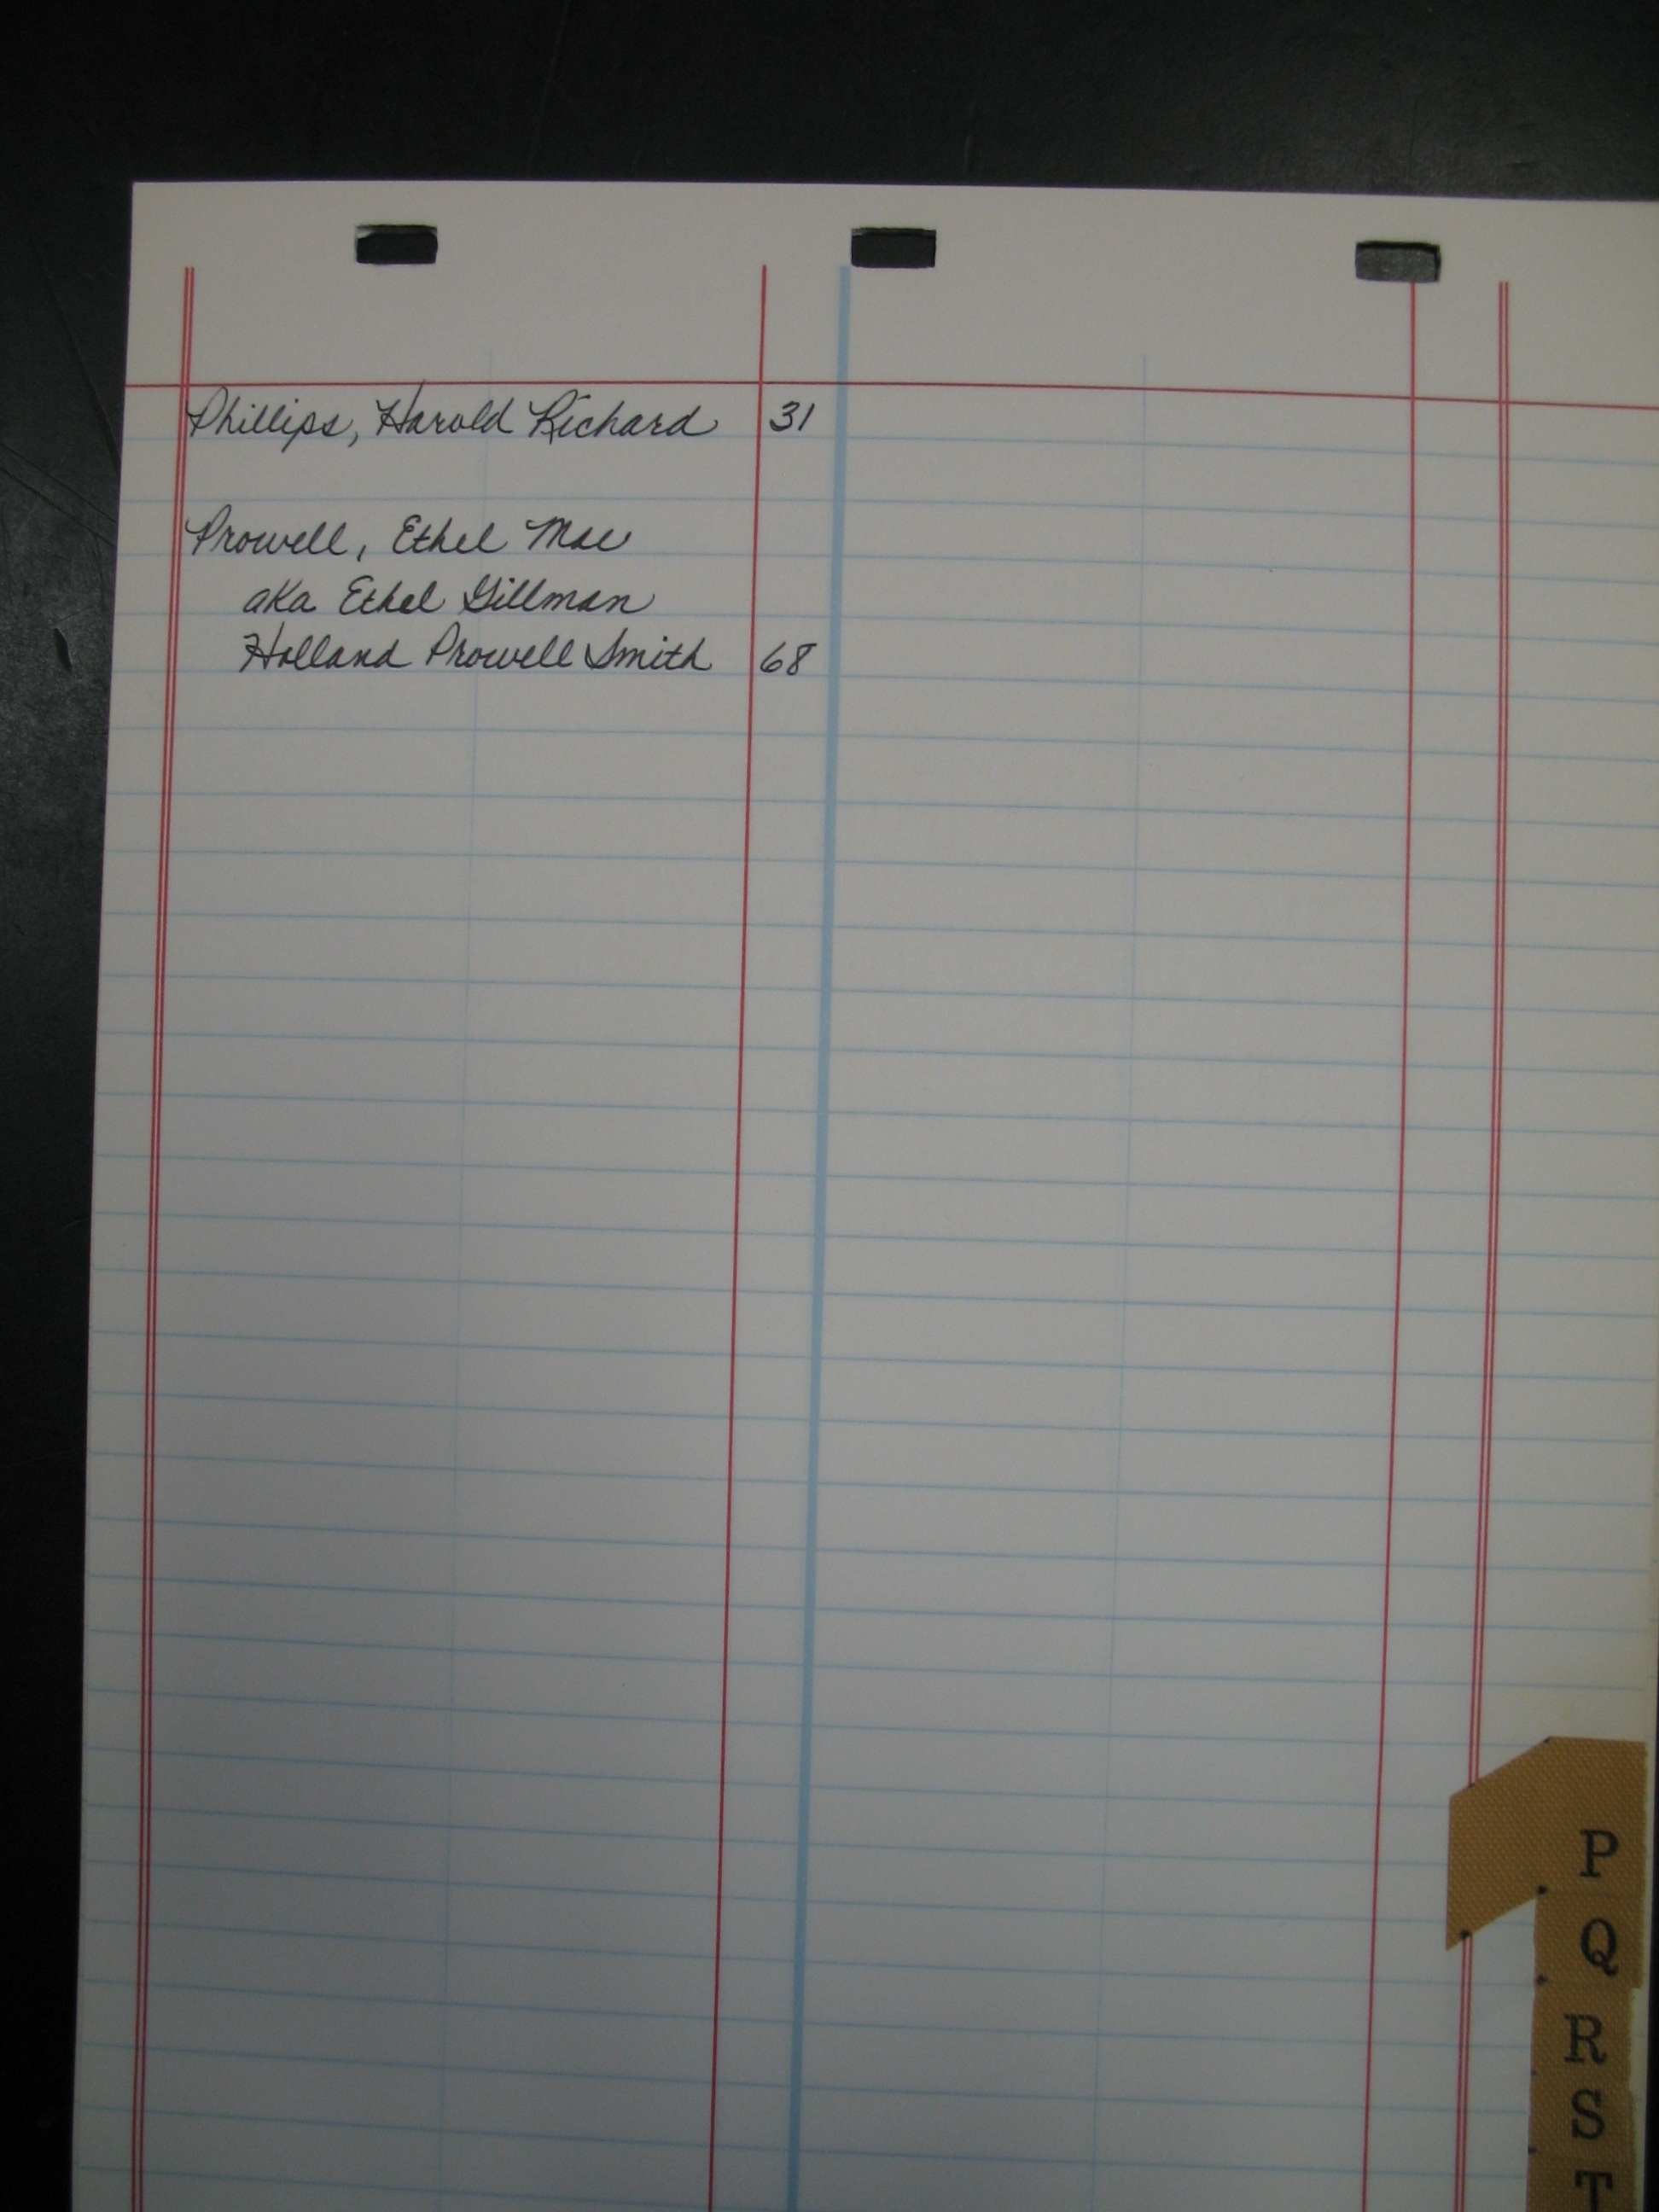 Phillips, Harold Richard 31
Prowell, Ethel Mae
aka Ethel Gillman
Holland Prowell Smith 68
P
Q
R
S
T